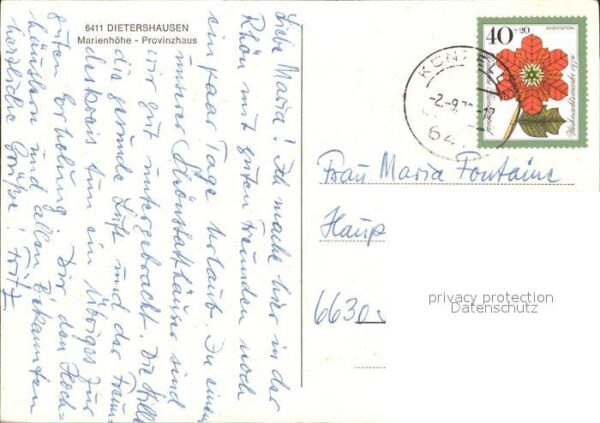 6411 DIETERSHAUSEN
Marienhöhe - Provinzhaus
Liebe Maria! Ich mache hier in der
Rhön mit guten Freunden noch
ein paar Tage Urlaub. In einem
unserer Schönstatthäuser sind
wir gut untergebracht. Die Stille
die gesunde Luft und der Freun-
deskreis tun ein Übriges zur
guten Erholung. Dir den Hoch-
häuslern und allen Bekannten
herzliche Grüße! Fritz
40 +20
ADVENTSSTERN
Weihnachtsmarke 1974
KÜN
-2.-9.7
64
Frau Maria Fontaine
Haup
6630
privacy protection
Datenschutz